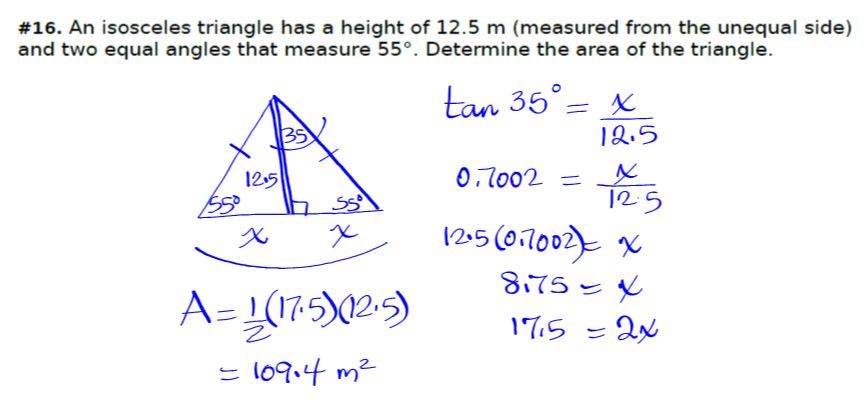 #16. An isosceles triangle has a height of 12.5 m (measured from the unequal side)
and two equal angles that measure 55°. Determine the area of the triangle.
35
12.5
55°
55°
x
x
tan 35° = x/12.5
0.7002 = x/12.5
12.5(0.7002) = x
8.75 = x
17.5 = 2x
A = 1/2(17.5)(12.5)
= 109.4 m²